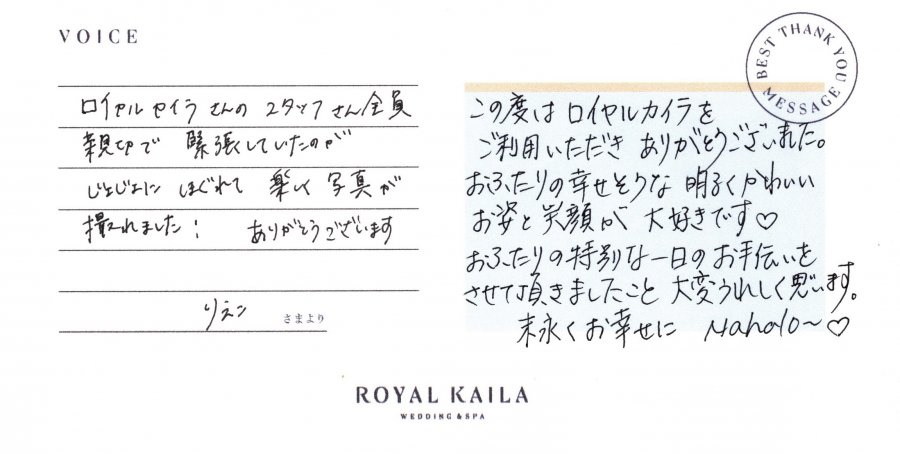 VOICE
ロイヤルセイラさんのスタッフさん全員
親切で 緊張していたのが
じょじょに ほぐれて 楽しく 写真が
撮れました! ありがとうございます
りえこ さまより
BEST THANK YOU MESSAGE
この度は ロイヤルカイラを
ご利用いただき ありがとうございました。
おふたりの幸せそうな 明るくかわいい
お姿と笑顔が 大好きです♡
おふたりの特別な一日のお手伝いを
させて頂きましたこと 大変うれしく思います。
末永くお幸せに Mahalo~♡
ROYAL KAILA
WEDDING & SPA